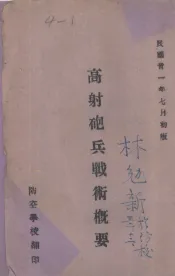 4-1
民國廿一年七月初版
高射砲兵戰術概要
林勉新
防空學校編印